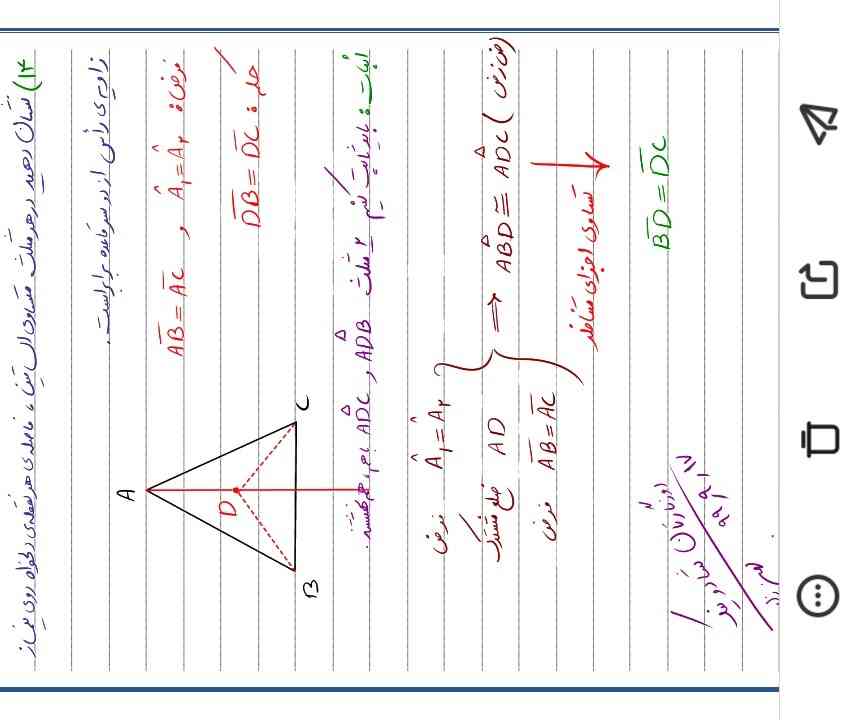 ۱۴) نشان دهید در هر مثلث متساوی الساقین، فاصله‌ی هر نقطه‌ی دلخواه روی نیمساز
زاویه‌ی رأس از دو سر قاعده برابر است.
فرض: Â₁=Â₂ , AB=AC
حکم: DB=DC
A
D
B
C
اثبات: باید ثابت کنیم ۲ مثلث ADB و ADC باهم همنهشتند.
فرض Â₁=Â₂
ضلع مشترک AD
فرض AB=AC
⇒ ABD≅ADC (ض ز ض)
تساوی اجزای متناظر
BD=DC